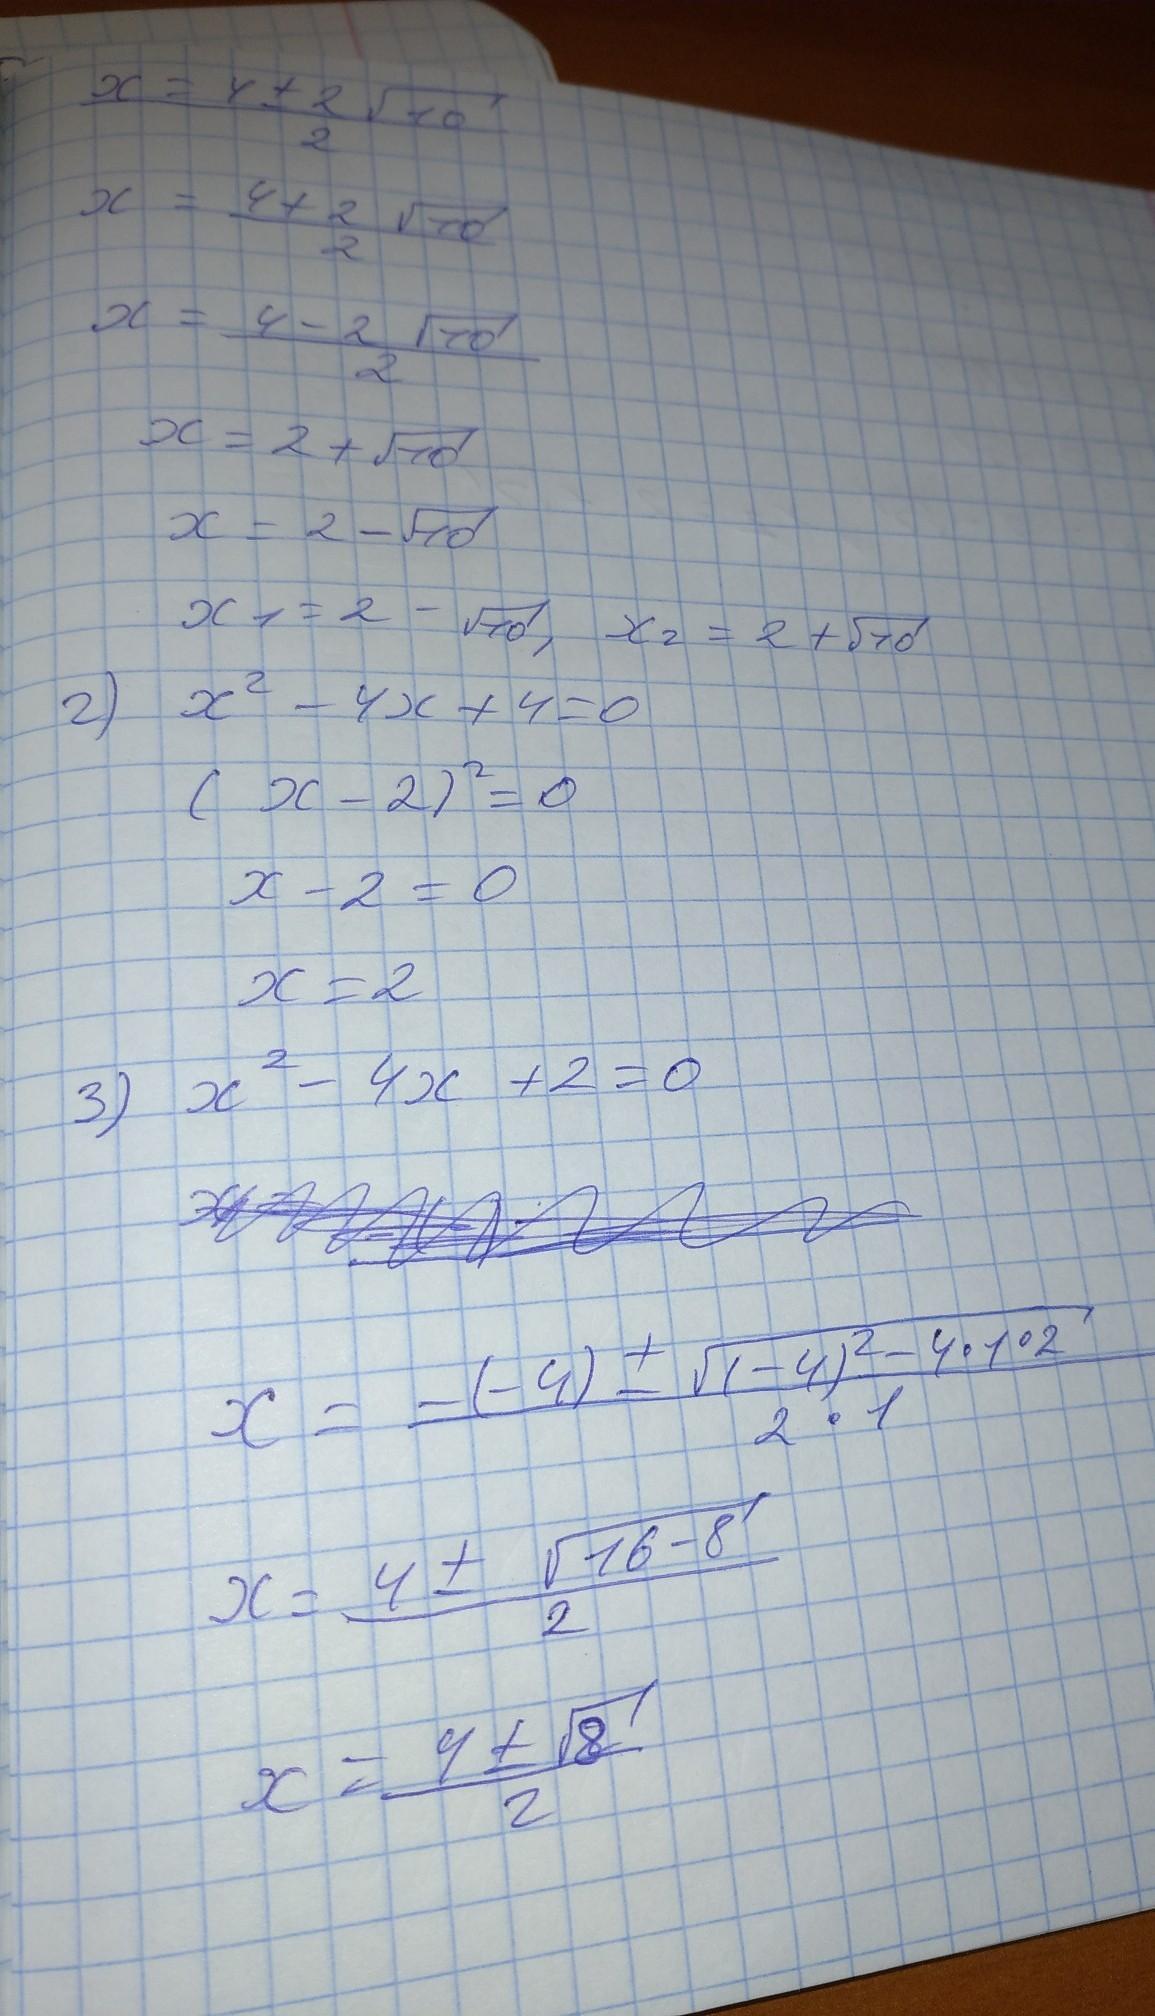 x = (4 ± 2√10)/2
x = (4 + 2√10)/2
x = (4 - 2√10)/2
x = 2 + √10
x = 2 - √10
x₁ = 2 - √10, x₂ = 2 + √10
2) x² - 4x + 4 = 0
(x - 2)² = 0
x - 2 = 0
x = 2
3) x² - 4x + 2 = 0
x = (-(-4) ± √((-4)² - 4·1·2))/(2·1)
x = (4 ± √(16 - 8))/2
x = (4 ± √8)/2